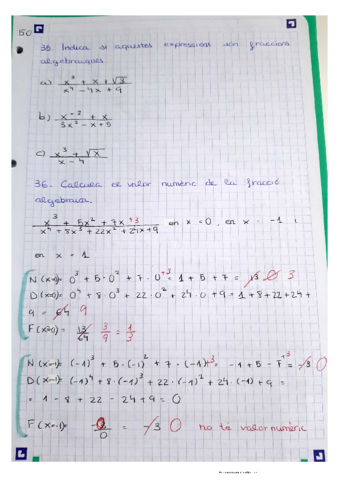 50
35. Indica si aquestes expressions són fraccions
algebraiques
a) x³ + x + √3 / x⁴ - 4x + 9
b) x⁻² + x / 3x² - x + 5
c) x³ + √x / x - 4
36. Calcula el valor numèric de la fracció
algebraica.
x³ + 5x² + 7x +3 / x⁴ + 8x³ + 22x² + 24x + 9 en x = 0, en x = -1 i
en x = 1
N(x=0)= 0³ + 5·0² + 7·0 +3 = 1 + 5 + 7 = 13 0 3
D(x=0)= 0⁴ + 8·0³ + 22·0² + 24·0 + 9 = 1 + 8 + 22 + 24 +
9 = 64 9
F(x=0)= 13/64 3/9 = 1/3
N(x=-1)= (-1)³ + 5·(-1)² + 7·(-1) +3 = -1 + 5 - 7 +3 = -3 0
D(x=-1)= (-1)⁴ + 8·(-1)³ + 22·(-1)² + 24·(-1) + 9 =
= 1 - 8 + 22 - 24 + 9 = 0
F(x=-1)= 0/0 = -3 0 no té valor numèric